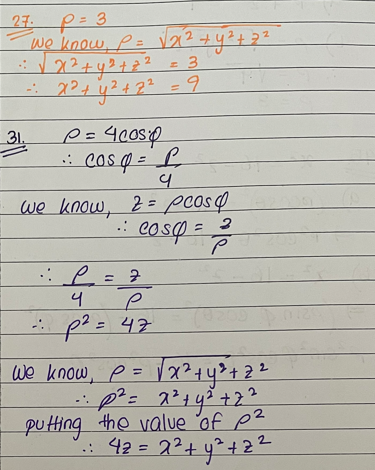 27. ρ = 3
We know, ρ = √x² + y² + z²
∴ √x² + y² + z² = 3
∴ x² + y² + z² = 9
31. ρ = 4cosφ
∴ cosφ = ρ/4
We know, z = ρcosφ
∴ cosφ = z/ρ
∴ ρ/4 = z/ρ
∴ ρ² = 4z
We know, ρ = √x² + y² + z²
∴ ρ² = x² + y² + z²
putting the value of ρ²
∴ 4z = x² + y² + z²